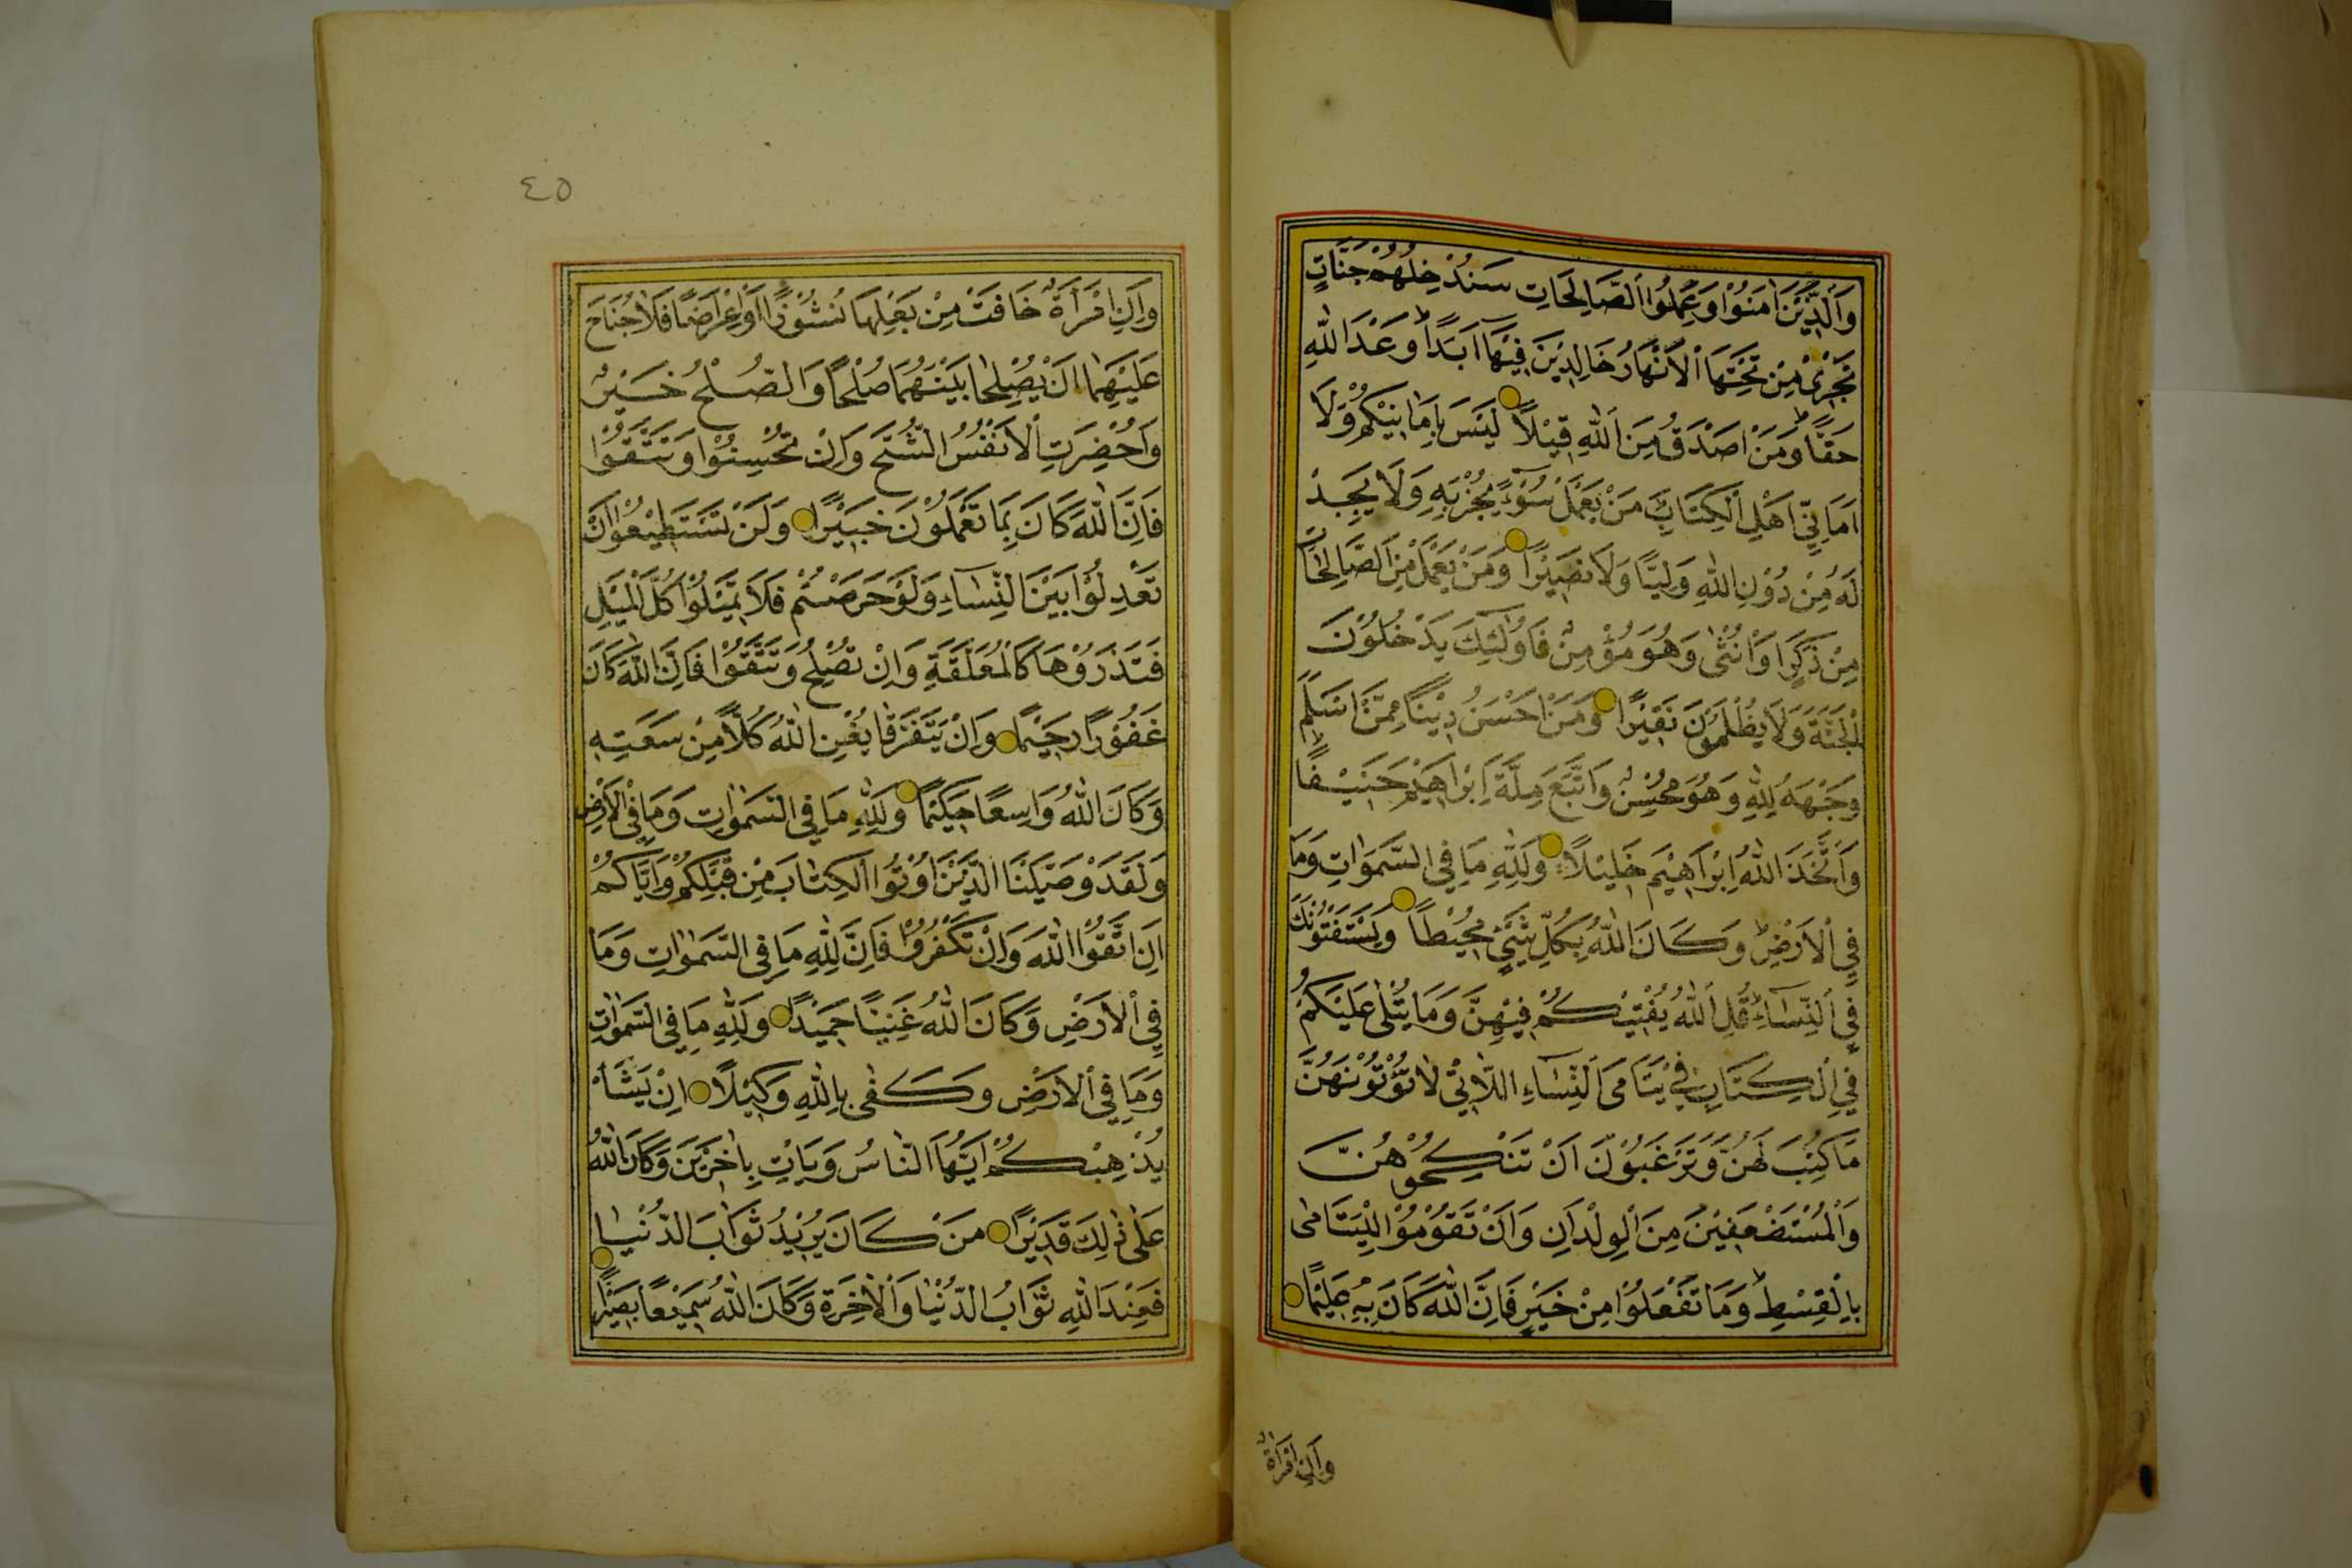 وَالَّذِينَ اٰمَنُوا وَعَمِلُوا الصَّالِحَاتِ سَنُدْخِلُهُمْ جَنَّاتٍ
تَجْرِي مِنْ تَحْتِهَا الْاَنْهَارُ خَالِدِينَ فِيهَا اَبَدًا وَعْدَ اللّٰهِ
حَقًّا وَمَنْ اَصْدَقُ مِنَ اللّٰهِ قِيلًا لَيْسَ بِاَمَانِيِّكُمْ وَلَا
اَمَانِيِّ اَهْلِ الْكِتَابِ مَنْ يَعْمَلْ سُوٓءًا يُجْزَ بِهِ وَلَا يَجِدْ
لَهُ مِنْ دُونِ اللّٰهِ وَلِيًّا وَلَا نَصِيرًا وَمَنْ يَعْمَلْ مِنَ الصَّالِحَاتِ
مِنْ ذَكَرٍ اَوْ اُنْثٰى وَهُوَ مُؤْمِنٌ فَاُولٰٓئِكَ يَدْخُلُونَ
الْجَنَّةَ وَلَا يُظْلَمُونَ نَقِيرًا وَمَنْ اَحْسَنُ دِينًا مِمَّنْ اَسْلَمَ
وَجْهَهُ لِلّٰهِ وَهُوَ مُحْسِنٌ وَاتَّبَعَ مِلَّةَ اِبْرَاهِيمَ حَنِيفًا
وَاتَّخَذَ اللّٰهُ اِبْرَاهِيمَ خَلِيلًا وَلِلّٰهِ مَا فِي السَّمٰوَاتِ وَمَا
فِي الْاَرْضِ وَكَانَ اللّٰهُ بِكُلِّ شَيْءٍ مُحِيطًا وَيَسْتَفْتُونَكَ
فِي النِّسَاءِ قُلِ اللّٰهُ يُفْتِيكُمْ فِيهِنَّ وَمَا يُتْلٰى عَلَيْكُمْ
فِي الْكِتَابِ فِي يَتَامَى النِّسَاءِ اللَّاتِي لَا تُؤْتُونَهُنَّ
مَا كُتِبَ لَهُنَّ وَتَرْغَبُونَ اَنْ تَنْكِحُوهُنَّ
وَالْمُسْتَضْعَفِينَ مِنَ الْوِلْدَانِ وَاَنْ تَقُومُوا لِلْيَتَامٰى
بِالْقِسْطِ وَمَا تَفْعَلُوا مِنْ خَيْرٍ فَاِنَّ اللّٰهَ كَانَ بِهِ عَلِيمًا
وَاِنِ امْرَاَةٌ
٤٥
وَاِنِ امْرَاَةٌ خَافَتْ مِنْ بَعْلِهَا نُشُوزًا اَوْ اِعْرَاضًا فَلَا جُنَاحَ
عَلَيْهِمَا اَنْ يُصْلِحَا بَيْنَهُمَا صُلْحًا وَالصُّلْحُ خَيْرٌ
وَاُحْضِرَتِ الْاَنْفُسُ الشُّحَّ وَاِنْ تُحْسِنُوا وَتَتَّقُوا
فَاِنَّ اللّٰهَ كَانَ بِمَا تَعْمَلُونَ خَبِيرًا وَلَنْ تَسْتَطِيعُوا اَنْ
تَعْدِلُوا بَيْنَ النِّسَاءِ وَلَوْ حَرَصْتُمْ فَلَا تَمِيلُوا كُلَّ الْمَيْلِ
فَتَذَرُوهَا كَالْمُعَلَّقَةِ وَاِنْ تُصْلِحُوا وَتَتَّقُوا فَاِنَّ اللّٰهَ كَانَ
غَفُورًا رَحِيمًا وَاِنْ يَتَفَرَّقَا يُغْنِ اللّٰهُ كُلًّا مِنْ سَعَتِهِ
وَكَانَ اللّٰهُ وَاسِعًا حَكِيمًا وَلِلّٰهِ مَا فِي السَّمٰوَاتِ وَمَا فِي الْاَرْضِ
وَلَقَدْ وَصَّيْنَا الَّذِينَ اُوتُوا الْكِتَابَ مِنْ قَبْلِكُمْ وَاِيَّاكُمْ
اَنِ اتَّقُوا اللّٰهَ وَاِنْ تَكْفُرُوا فَاِنَّ لِلّٰهِ مَا فِي السَّمٰوَاتِ وَمَا
فِي الْاَرْضِ وَكَانَ اللّٰهُ غَنِيًّا حَمِيدًا وَلِلّٰهِ مَا فِي السَّمٰوَاتِ
وَمَا فِي الْاَرْضِ وَكَفٰى بِاللّٰهِ وَكِيلًا اِنْ يَشَأْ
يُذْهِبْكُمْ اَيُّهَا النَّاسُ وَيَاْتِ بِاٰخَرِينَ وَكَانَ اللّٰهُ
عَلٰى ذٰلِكَ قَدِيرًا مَنْ كَانَ يُرِيدُ ثَوَابَ الدُّنْيَا
فَعِنْدَ اللّٰهِ ثَوَابُ الدُّنْيَا وَالْاٰخِرَةِ وَكَانَ اللّٰهُ سَمِيعًا بَصِيرًا